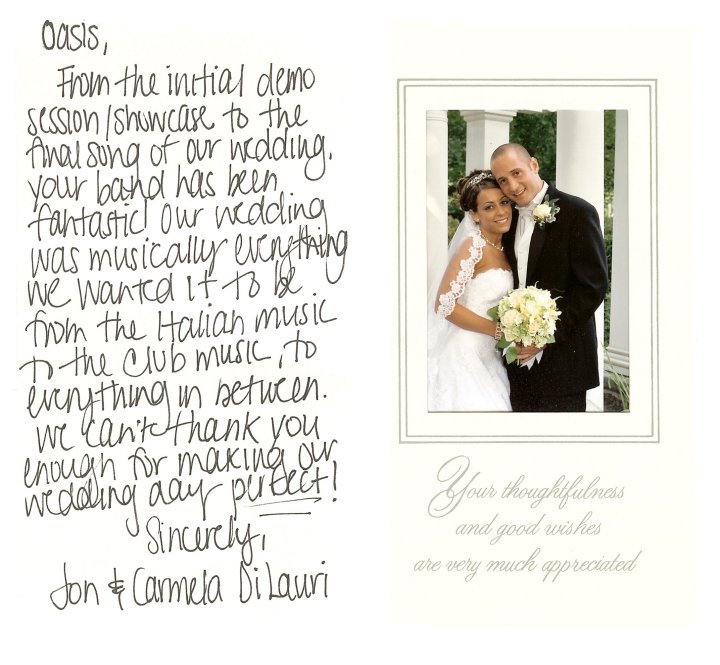 Oasis,
From the initial demo
session/showcase to the
final song of our wedding,
your band has been
fantastic! Our wedding
was musically everything
we wanted it to be
from the Italian music
to the club music, to
everything in between.
We can't thank you
enough for making our
wedding day perfect!
Sincerely,
Jon & Carmela DiLauri
Your thoughtfulness
and good wishes
are very much appreciated